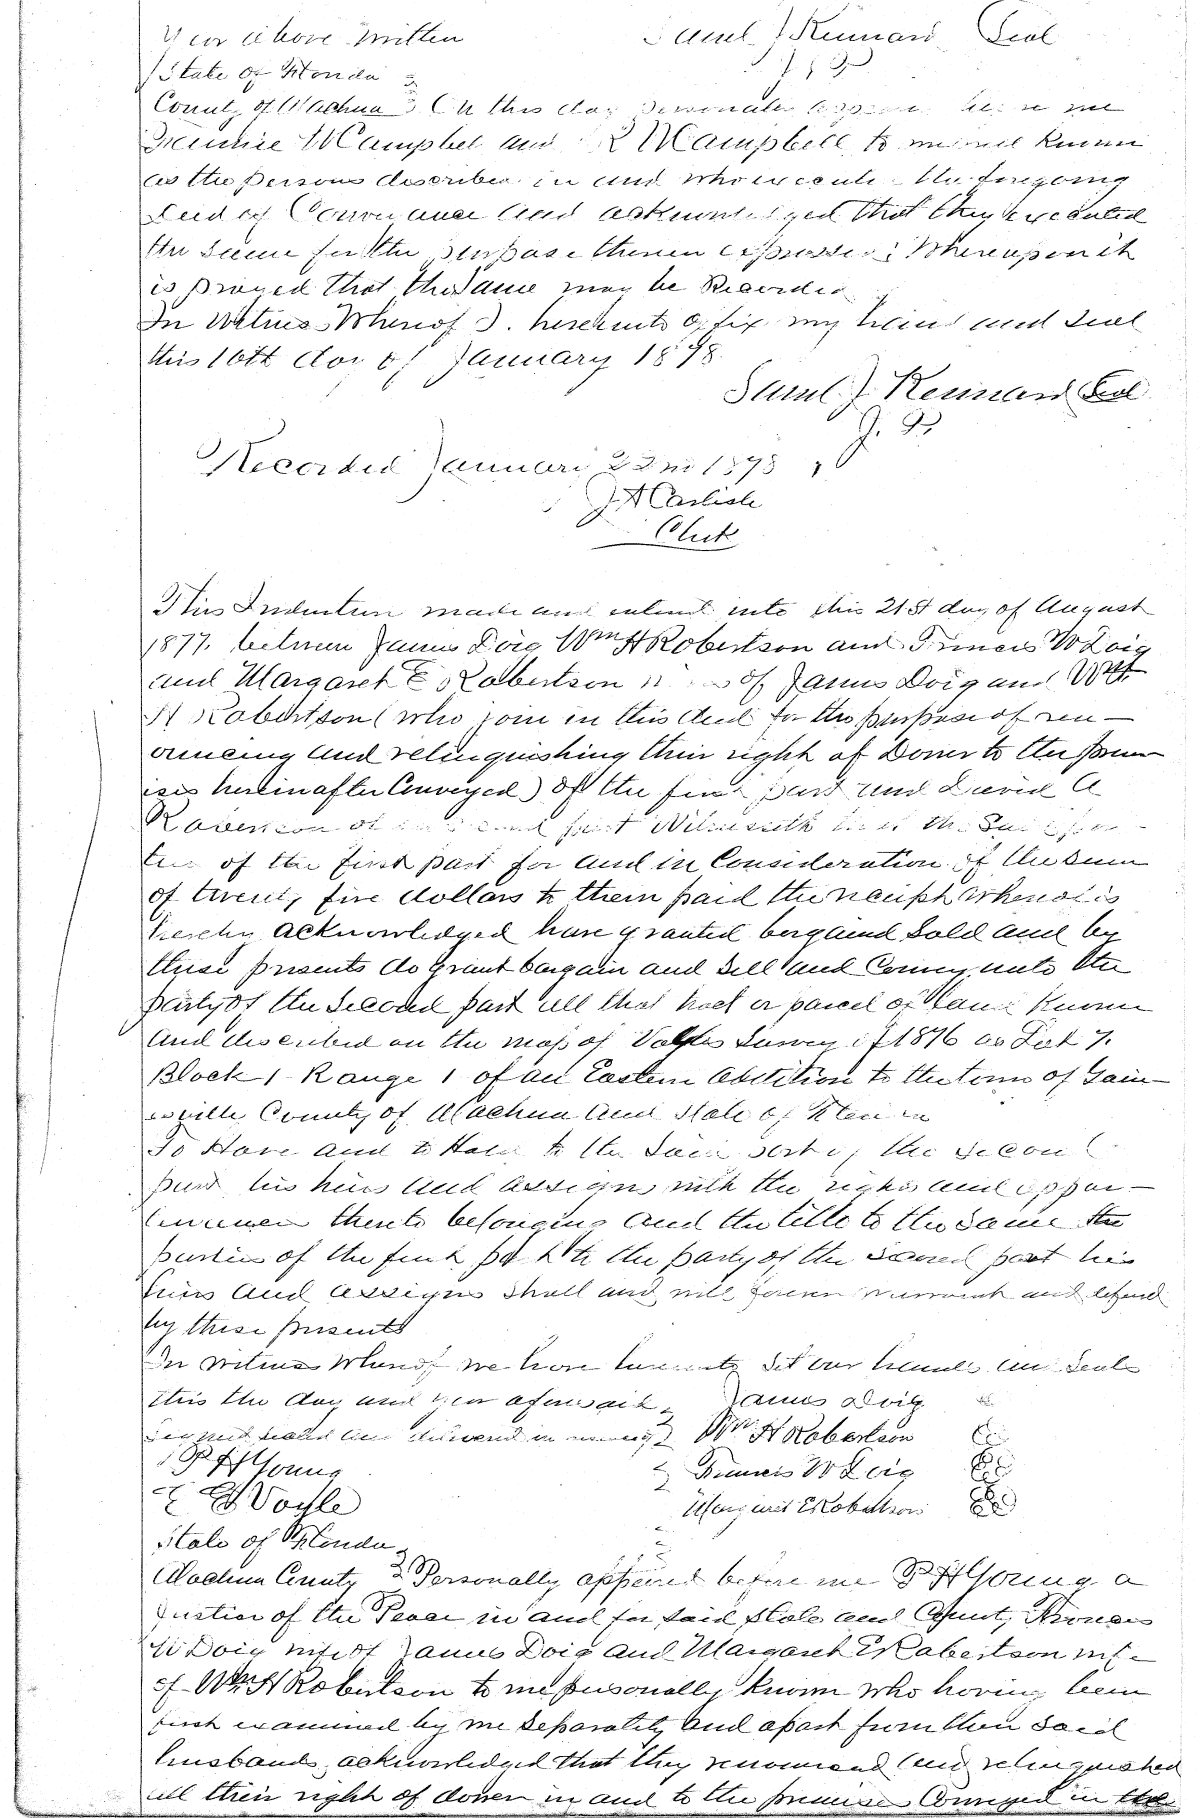 Year above Written Saml J Kennard Seal
State of Florida J P
County of Alachua On this day Personally before me
Campbell and R M Campbell to me well known
as the persons described in and who the foregoing
Deed of Conveyance and acknowledged that they executed
the same for the purpose therein expressed Whereupon it
is prayed that the same may be Recorded
In Witness Whereof I hereunto afix my hand and Seal
this 10th day of January 1898
Saml J. Kennard Seal
J. P
Recorded January 22nd 1898
J A Carlisle
Clerk
This Indenture made and entered into this 21st day of August
1877. between James Doig Wm H Robertson and Frances W Doig
and Margaret E Robertson of James Doig and Wm
H Robertson (who join in this deed for the purpose of ren-
ouncing and relinquishing their right of Dower to the prem
ises hereinafter Conveyed) of the first part and David A
of second part Witnesseth that the Said par-
ties of the first part for and in Consideration of the sum
of twenty five dollars to them paid the receipt whereof is
hereby acknowledged have granted bargaind Sold and by
these presents do grant bargain and Sell and Convey unto the
party of the Second part all that tract or parcel of land Known
and described on the map of Survey of 1876 as Lot 7.
Block 1 Range 1 of an Eastern Addition to the town of Gain-
esville County of Alachua and State of Florida
To Have and to Hold to the Said party of the Second
part his heirs and assigns with the rights and appur-
tenances thereto belonging and the title to the same the
parties of the first part to the party of the Second part his
heirs and assigns Shall and will forever warrant and defend
by these presents
In witness Whereof we have hereunto Set our hands and Seals
this the day and year aforesaid James Doig
sealed and delivered in Wm H Robertson
P H Young Frances W Doig
Voyle Margaret E Robertson
State of Florida
Alachua County Personally appeared before me P H Young a
Justice of the Peace in and for Said State and County Frances
W Doig wife of James Doig and Margaret E Robertson wife
of Wm H Robertson to me personally known who having been
first examined by me Separately and apart from their Said
husbands, acknowledged that they renounced and relinquished
all their right of dower in and to the premises Conveyed in the